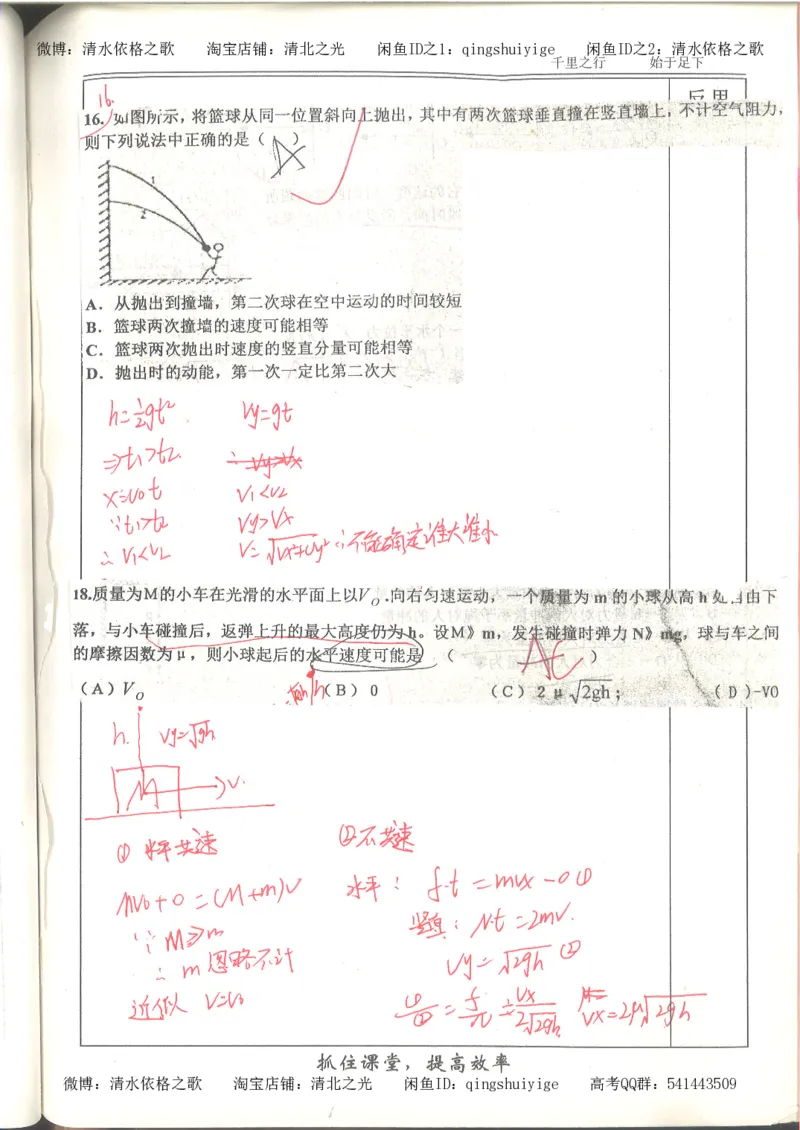 微博：清水依格之歌 淘宝店铺：清北之光 闲鱼ID之1：qingshuiyige 闲鱼ID之2：清水依格之歌
千里之行 始于足下
反思
16.
16. 如图所示，将篮球从同一位置斜向上抛出，其中有两次篮球垂直撞在竖直墙上，不计空气阻力，
则下列说法中正确的是（ ）
1
2
A．从抛出到撞墙，第二次球在空中运动的时间较短
B．篮球两次撞墙的速度可能相等
C．篮球两次抛出时速度的竖直分量可能相等
D．抛出时的动能，第一次一定比第二次大
h=½gt² Vy=gt
⇒t₁>t₂ ∴Vy>Vx
x=v₀t V₁<V₂
∵t₁>t₂ Vy>Vx
∴V₁<V₂ V=√Vx²+Vy² ∴不能确定谁大谁小
18.质量为M的小车在光滑的水平面上以V₀.向右匀速运动，一个质量为 m 的小球从高 h 处自由下
落，与小车碰撞后，返弹上升的最大高度仍为 h。设M》m，发生碰撞时弹力 N》mg，球与车之间
的摩擦因数为 μ，则小球起后的水平速度可能是 （ AC ）
(A) V₀ (B) 0 (C) 2μ√2gh； (D)-V0
h Vy=√gh
M V.
① 水平共速 ②不共速
MV₀+0=(M+m)V 水平： f·t=mvx-0 ①
∵M≫m 竖直：N·t=2mv.
∴m忽略不计 Vy=√2gh ②
近似 V=V₀ Vx=2μ√2gh
抓住课堂，提高效率
微博：清水依格之歌 淘宝店铺：清北之光 闲鱼ID：qingshuiyige 高考QQ群：541443509